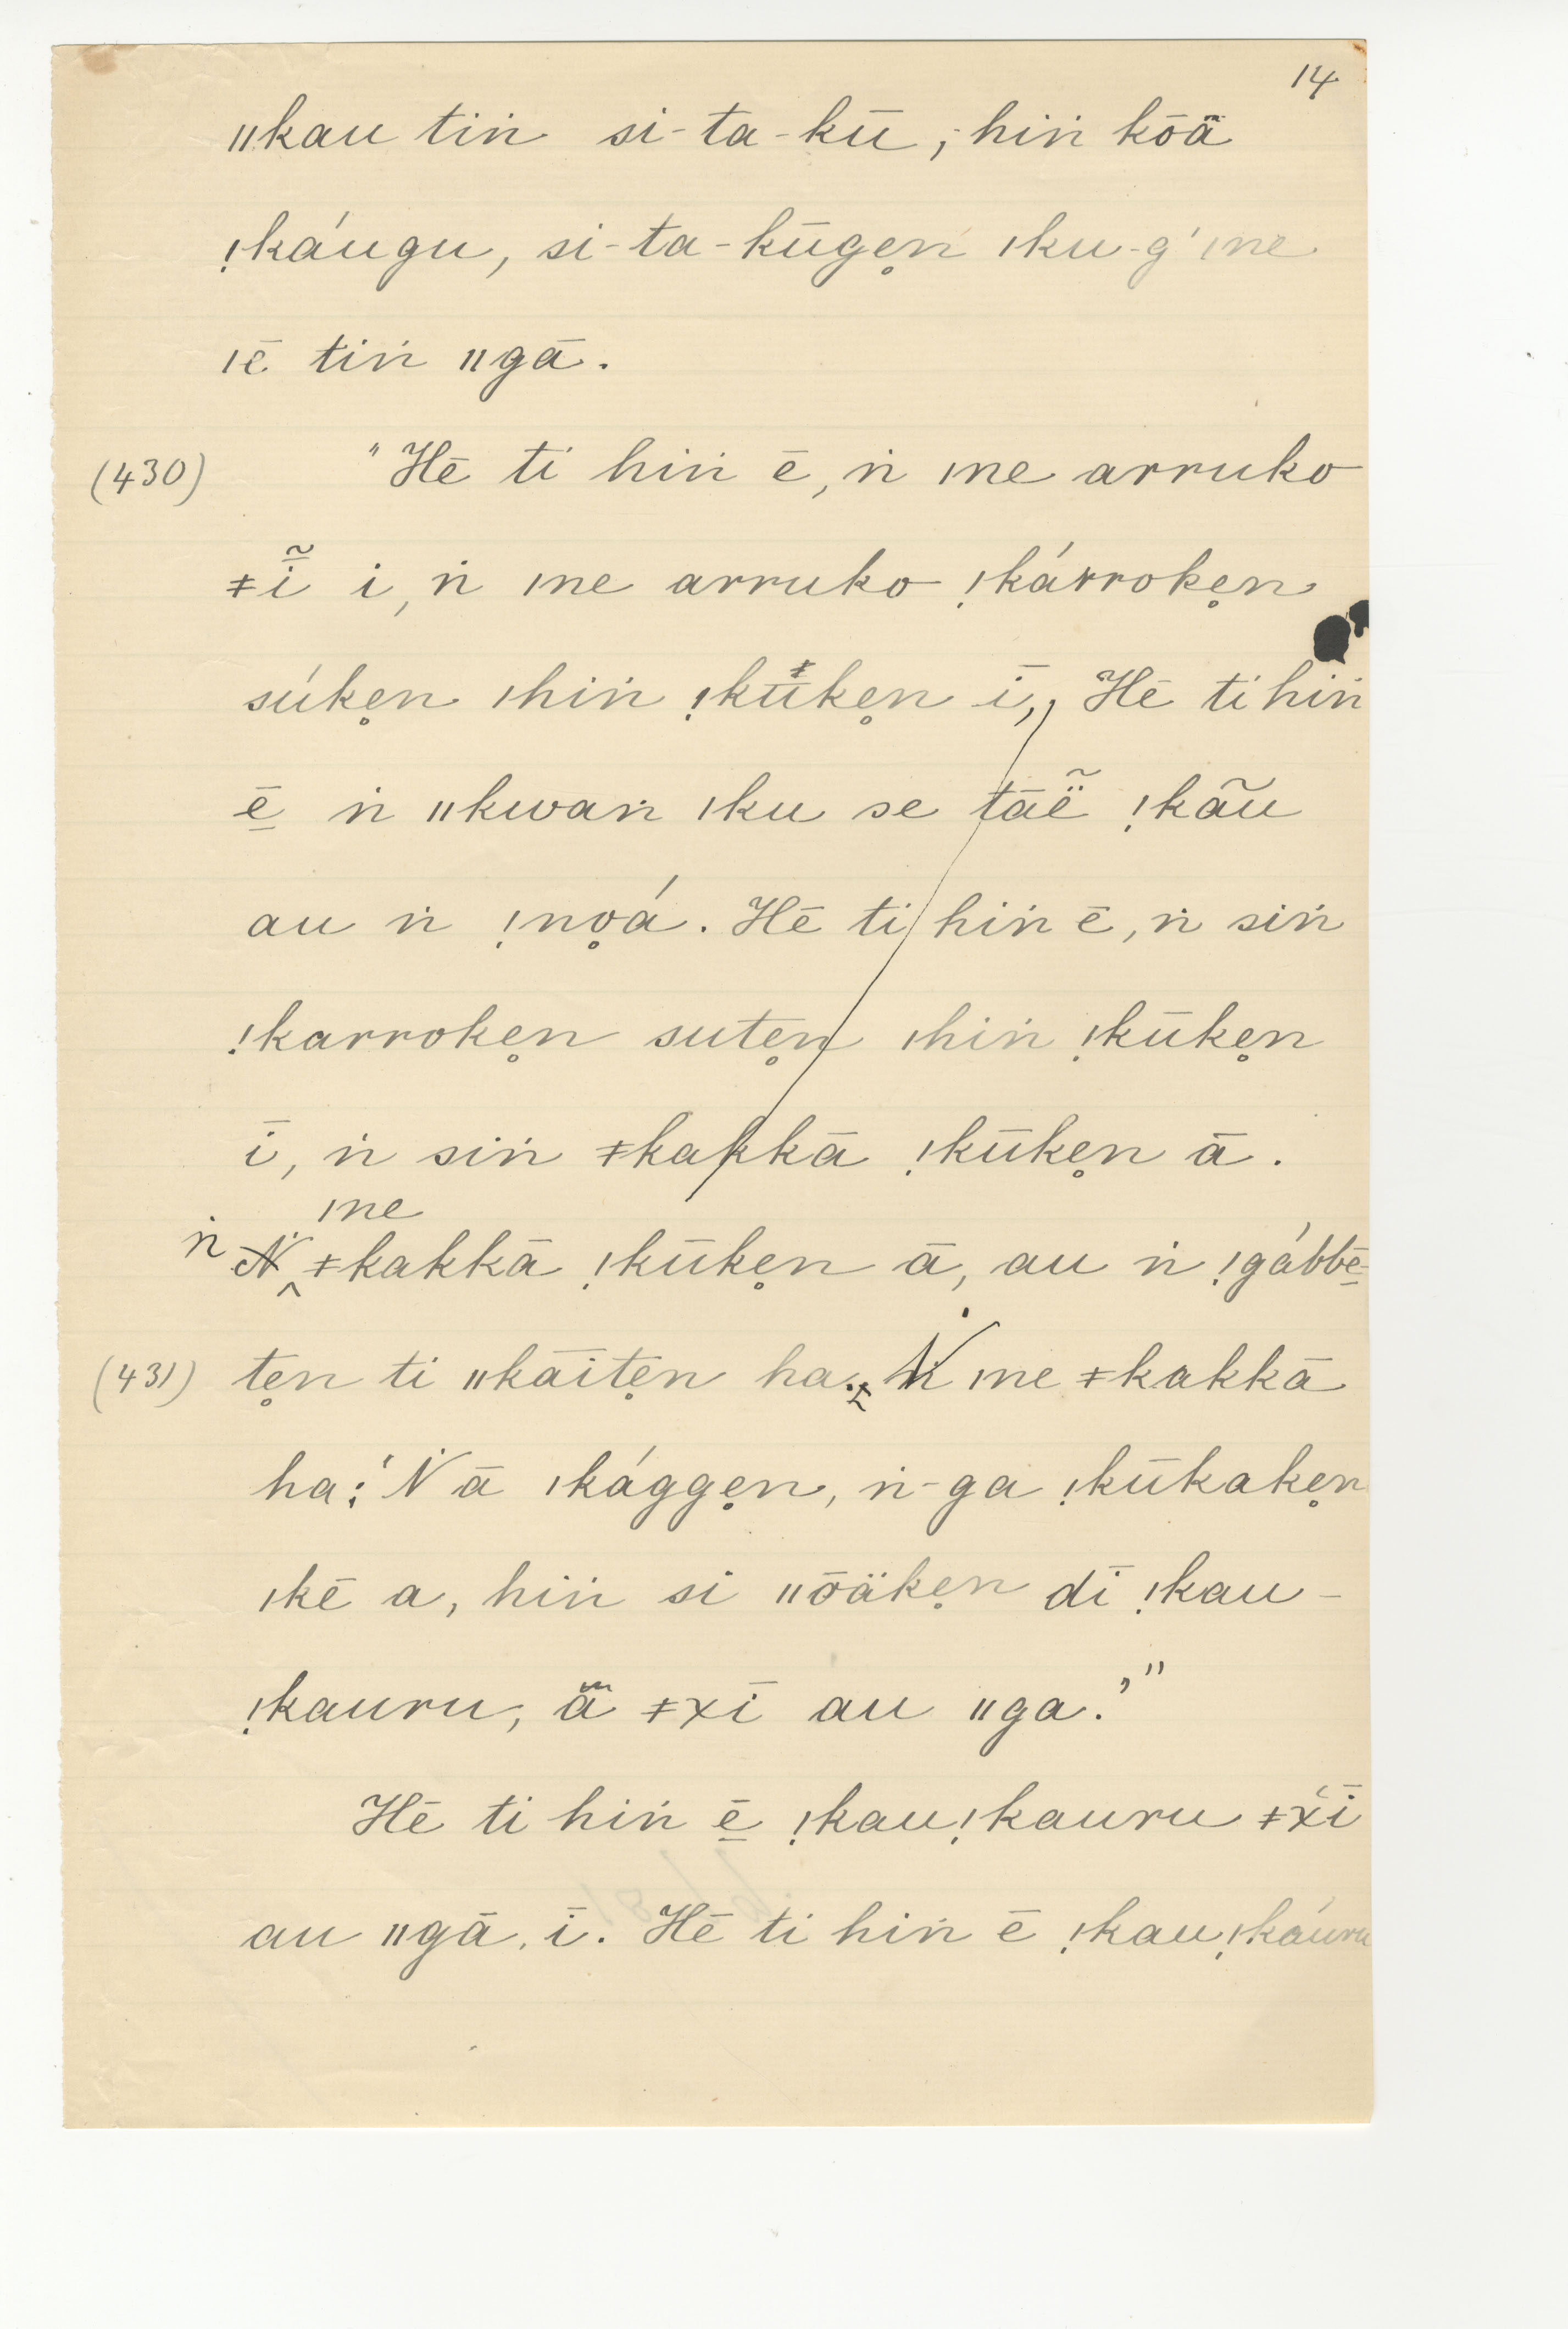 14
ǁkau tiṅ si-ta-kū; hiṅ kōä̃
!káugu, si-ta-kūgen̥ ǀku-g' ǀne
ǀē tiṅ ǁgā.
(430) "Hē ti hiṅ ē, ṅ ǀne arruko
ǂī̃ i, ṅ ǀne arruko !kárroke̥n
súke̥n ǀhiṅ !kūke̥n ī, Hē ti hiṅ
ē̱ ṅ ǁkwaṅ ǀku se tāë̃ !kãu
au ṅ !no̥á. Hē ti hiṅ ē, ṅ siṅ
!karroke̥n sute̥n ǀhiṅ !kūke̥n
ī, ṅ siṅ ǂkakkā !kūke̥n ā.
ǀne
ṅ ǂkakkā !kūke̥n ā, au ṅ !gábbē̱-
(431) te̥n ti ǁkāite̥n ha. Ṅ ǀne ǂkakkā
ha: 'Ṅ ā ǀkágge̥n, ṅ-ga !kūkake̥n
ǀkē a, hiṅ si ǁōäke̥n dī !kau-
!kauru, ä̃ ǂxī au ǁga.'"
Hē ti hiṅ ē̱ !kau!kauru ǂx́ī
au ǁgā, ī. Hē ti hiṅ ē !kau!káuru